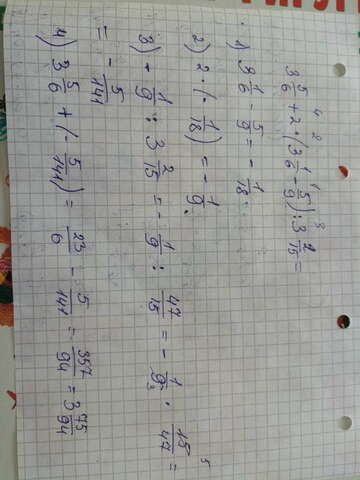 4 2 1 3
3 5/6 + 2 · (3 1/6 - 5/9) : 3 2/15 =
1) 3 1/6 - 5/9 = - 1/18;
2) 2 · (- 1/18) = - 1/9;
3) - 1/9 : 3 2/15 = - 1/9 : 47/15 = - 1/9 · 15/47 =
= - 5/141
4) 3 5/6 + (- 5/141) = 23/6 - 5/141 = 357/94 = 3 75/94